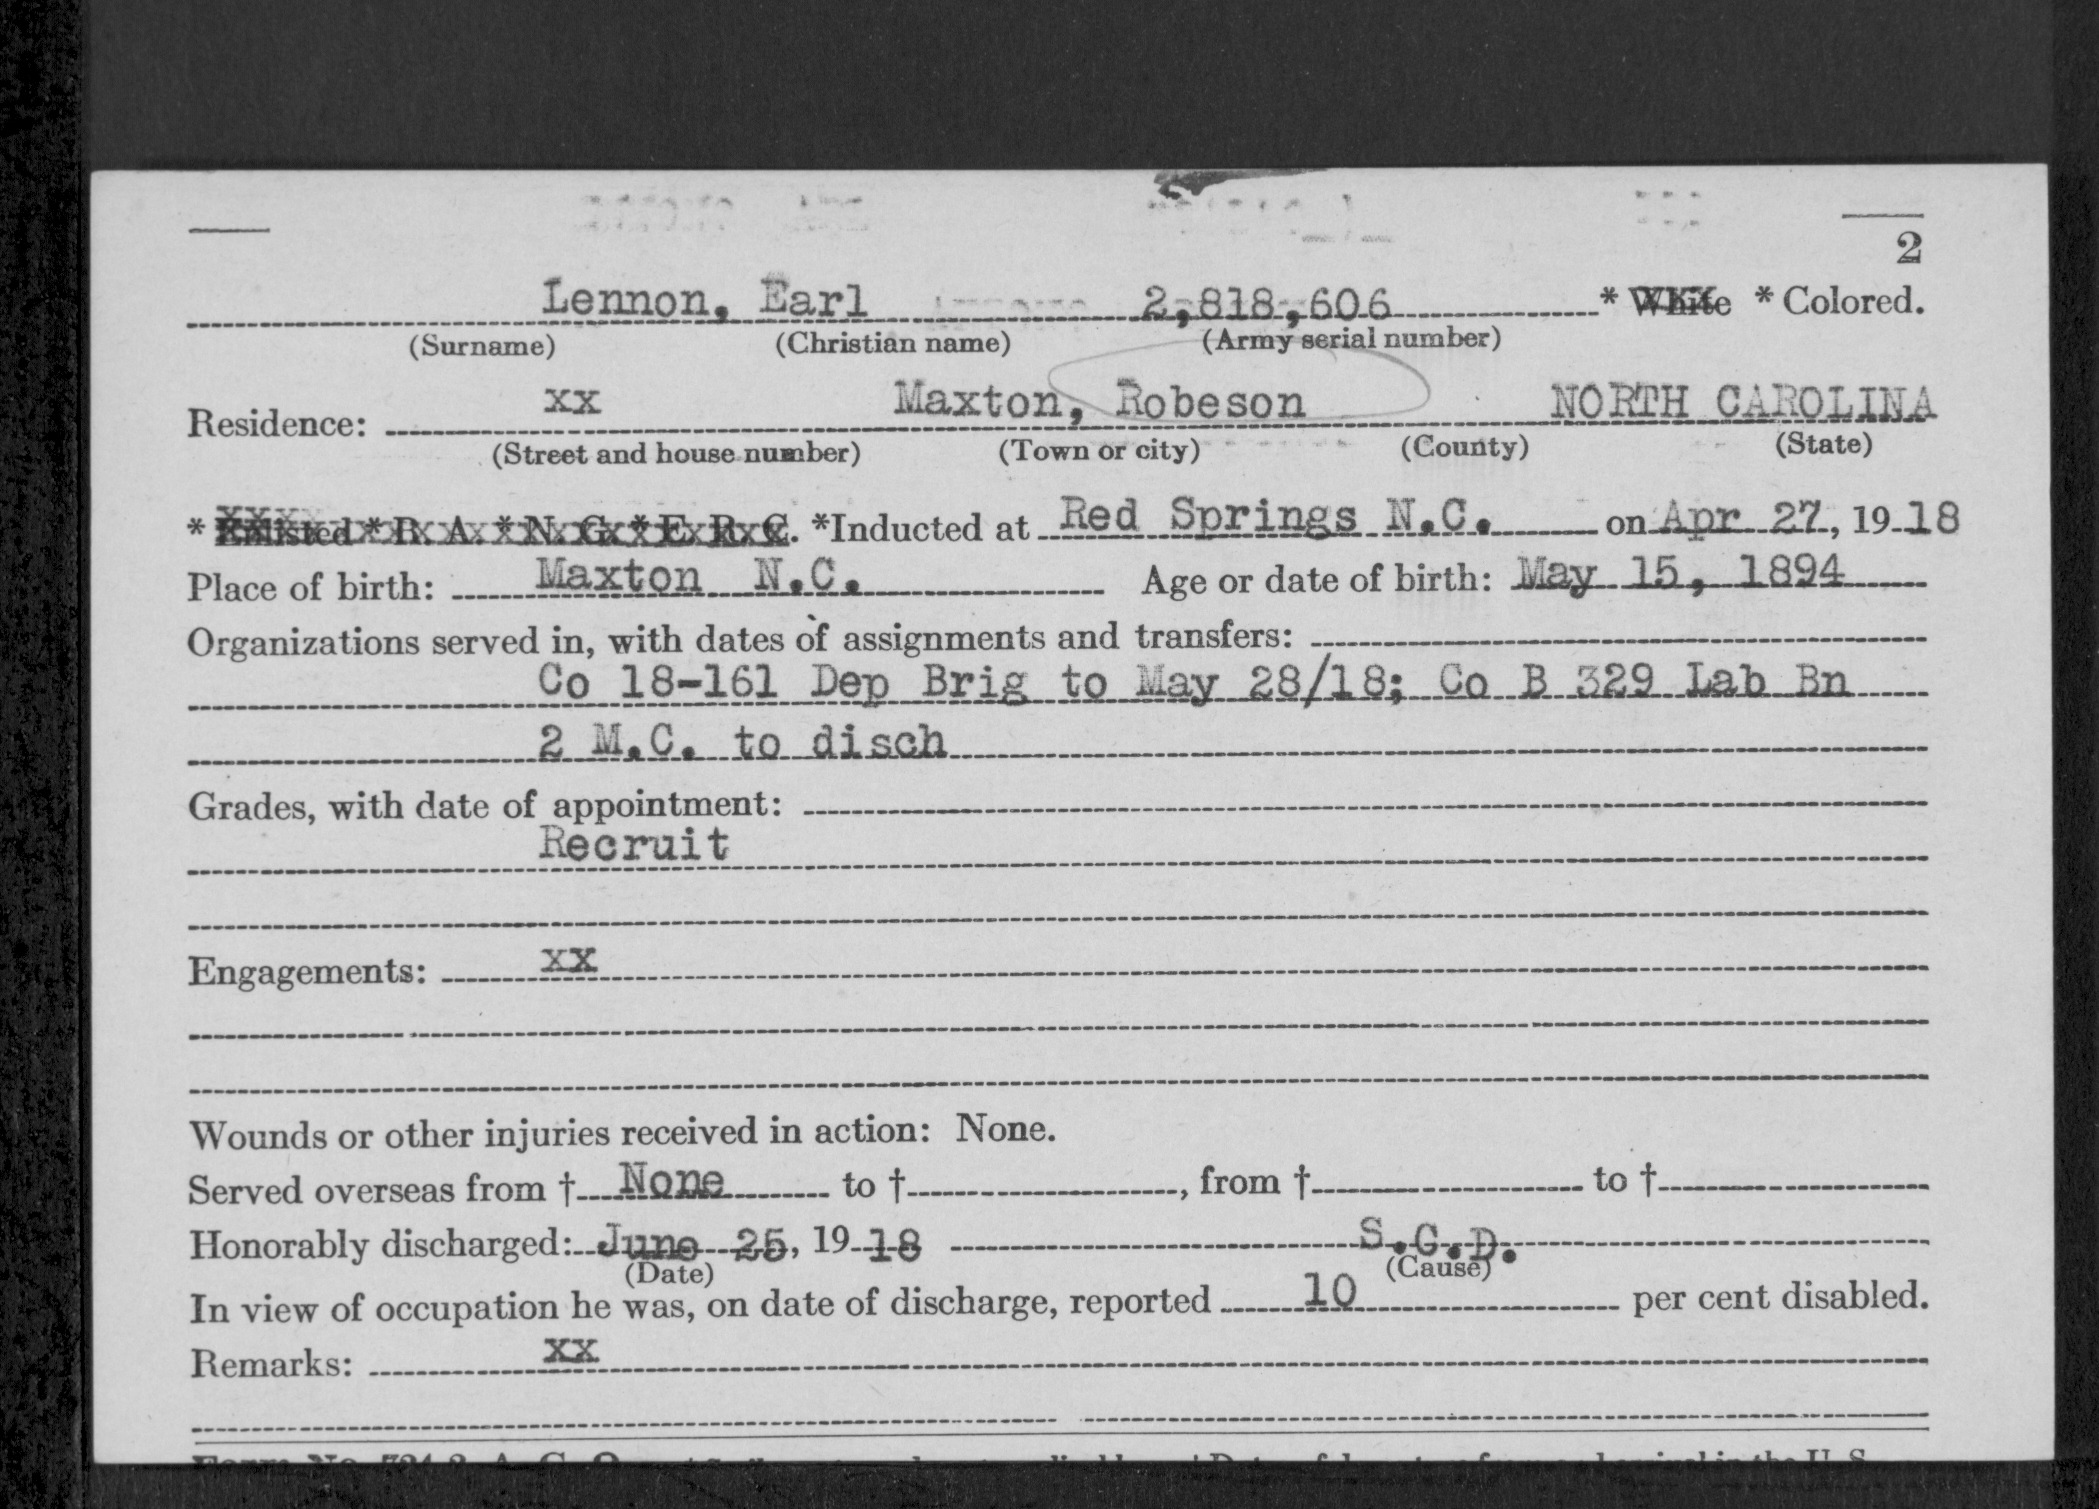 2
Lennon, Earl 2,818,606 * White * Colored.
(Surname) (Christian name) (Army serial number)
Residence: xx Maxton, Robeson NORTH CAROLINA
(Street and house number) (Town or city) (County) (State)
* Enlisted * R. A. * N. G. * E. R. C. *Inducted at Red Springs N.C. on Apr 27, 1918
Place of birth: Maxton N.C. Age or date of birth: May 15, 1894
Organizations served in, with dates of assignments and transfers:
Co 18-161 Dep Brig to May 28/18; Co B 329 Lab Bn
2 M.C. to disch
Grades, with date of appointment:
Recruit
Engagements: xx
Wounds or other injuries received in action: None.
Served overseas from † None to †, from † to †
Honorably discharged: June 25, 1918 S.C.D.
(Date) (Cause)
In view of occupation he was, on date of discharge, reported 10 per cent disabled.
Remarks: xx